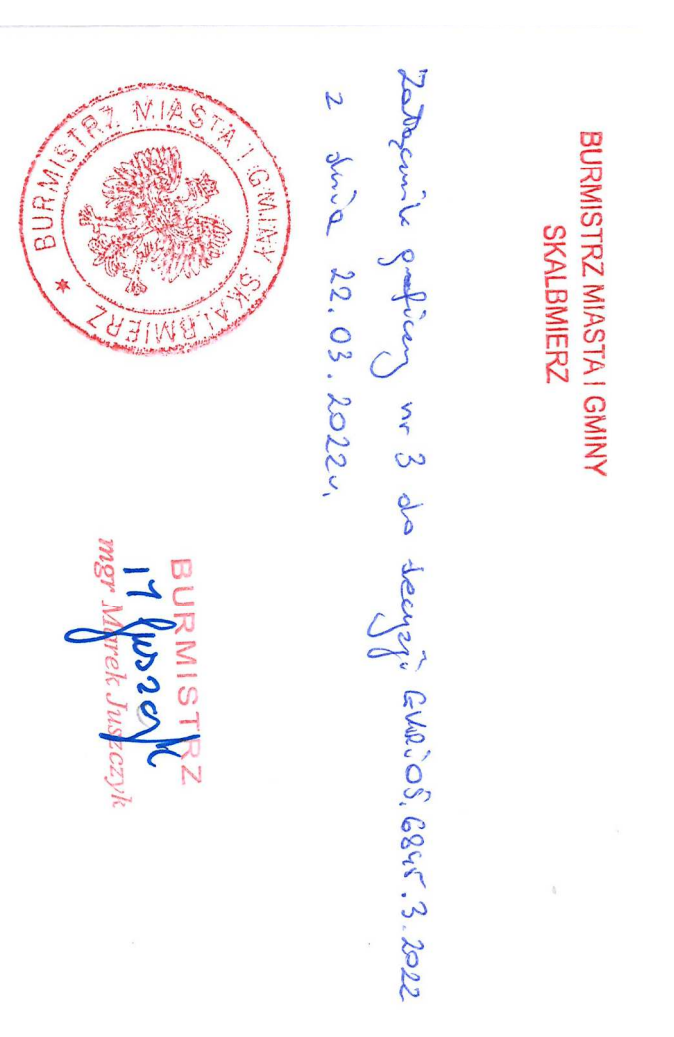 BURMISTRZ MIASTA I GMINY
SKALBMIERZ
Załącznik graficzny nr 3 do decyzji GKRiOŚ.6845.3.2022
z dnia 22.03.2022r.
BURMISTRZ MIASTA I GMINY SKALBMIERZ *
BURMISTRZ
M Juszczyk
mgr Marek Juszczyk